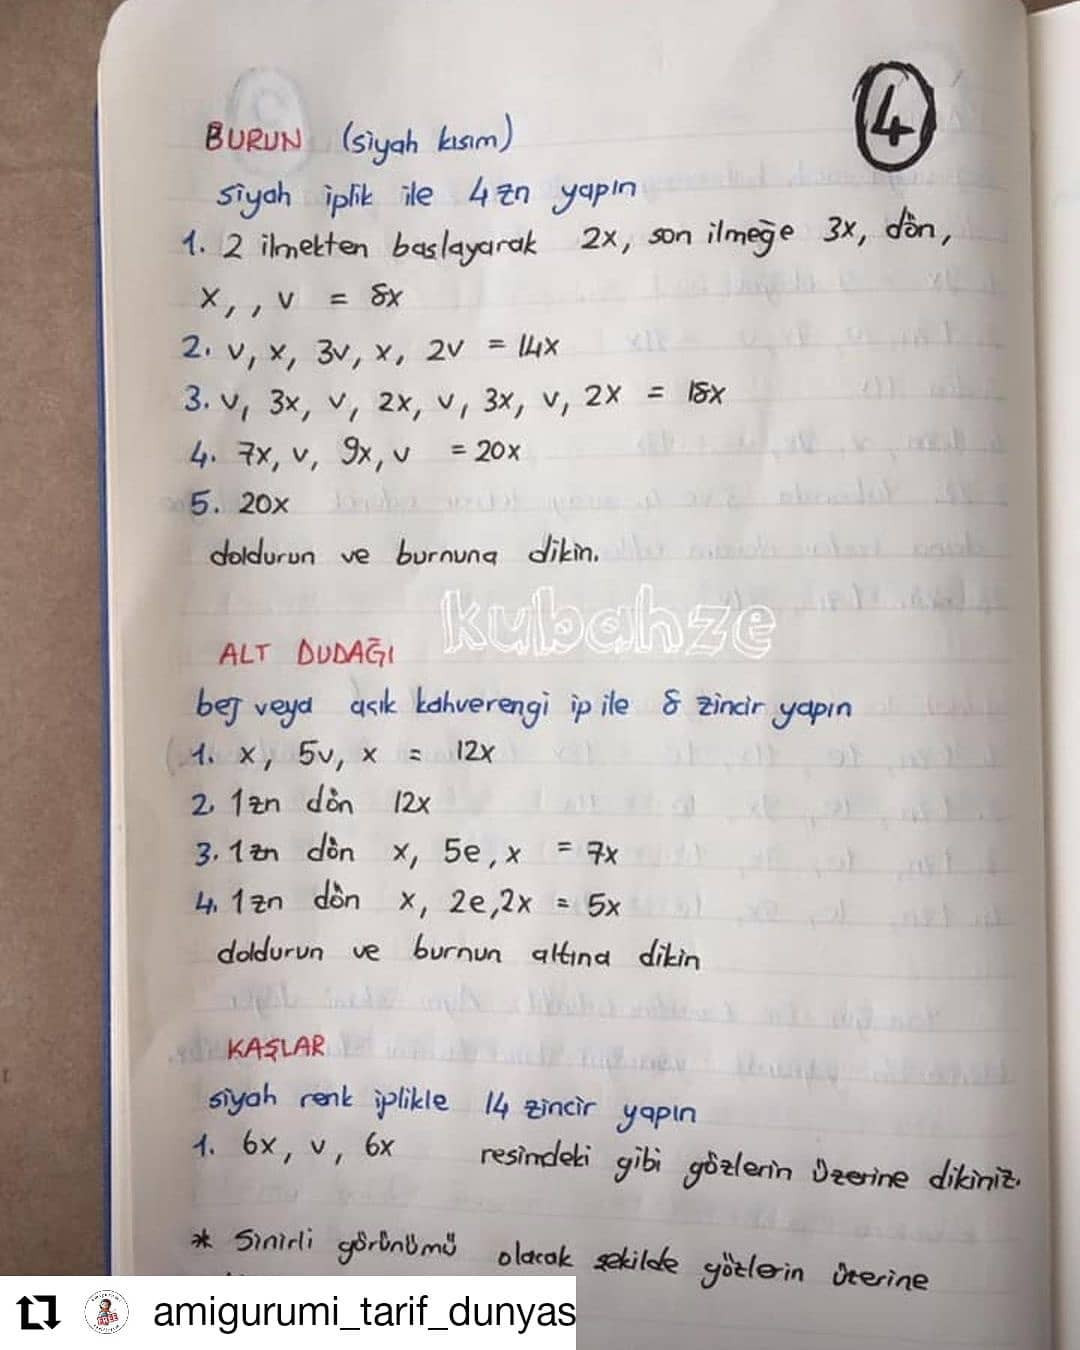 4
BURUN (siyah kısım)
siyah iplik ile 4 zn yapın
1. 2 ilmekten başlayarak 2x, son ilmeğe 3x, dön,
x, , v = 8x
2. v, x, 3v, x, 2v = 14x
3. v, 3x, v, 2x, v, 3x, v, 2x = 18x
4. 7x, v, 9x, v = 20x
5. 20x
doldurun ve burnuna dikin.
kubahze
ALT DUDAĞI
bej veya açık kahverengi ip ile 8 zincir yapın
1. x, 5v, x = 12x
2. 1zn dön 12x
3. 1zn dön x, 5e, x = 7x
4. 1zn dön x, 2e, 2x = 5x
doldurun ve burnun altına dikin
KAŞLAR
siyah renk iplikle 14 zincir yapın
1. 6x, v, 6x resimdeki gibi gözlerin üzerine dikiniz.
* Sinirli görünümü olacak şekilde gözlerin üzerine
amigurumi_tarif_dunyas